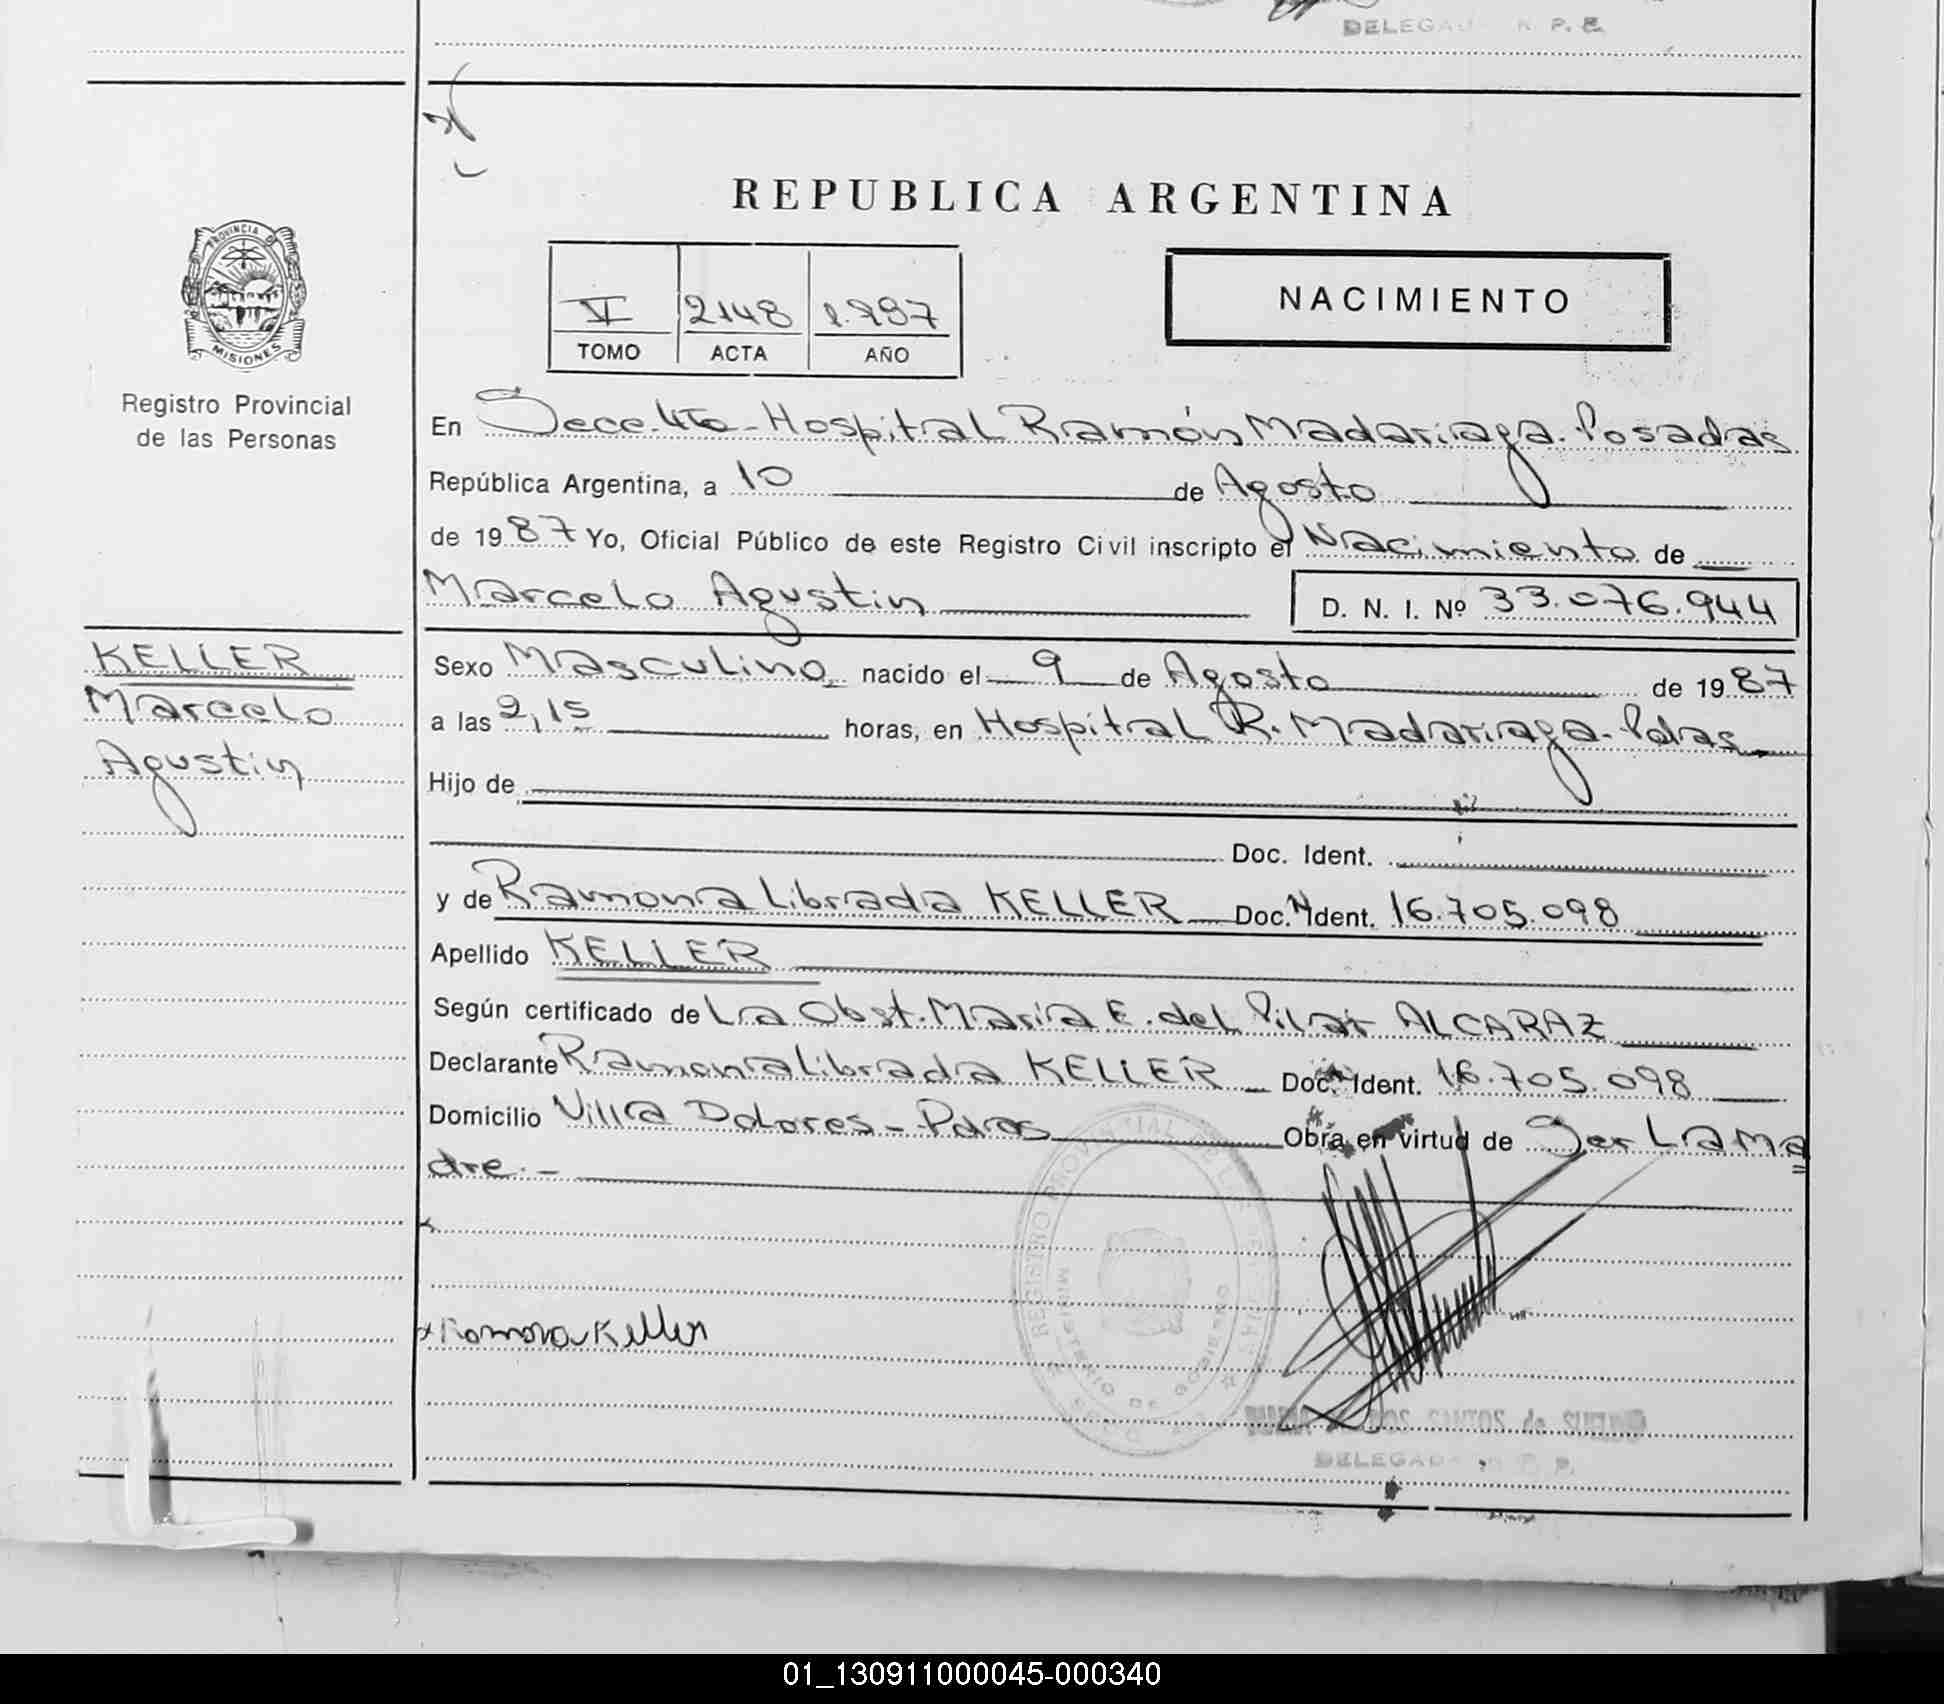 DELEGAD R. P. E.
REPUBLICA ARGENTINA
PROVINCIA DE
MISIONES
Registro Provincial
de las Personas
V 2148 1.987
TOMO ACTA AÑO
NACIMIENTO
En Secc. 4ta - Hospital Ramón Madariaga. Posadas
República Argentina, a 10 de Agosto
de 1987 Yo, Oficial Público de este Registro Civil inscripto el Nacimiento de
Marcelo Agustin D. N. I. Nº 33.076.944
KELLER
Marcelo
Agustin
Sexo Masculino nacido el 9 de Agosto de 1987
a las 2,15 horas, en Hospital R. Madariaga - Pdas
Hijo de
Doc. Ident.
y de Ramona Librada KELLER Doc. N Ident. 16.705.098
Apellido KELLER
Según certificado de La Obst. María E. del Pilar ALCARAZ
Declarante Ramona Librada KELLER Doc. N Ident. 16.705.098
Domicilio Villa Dolores - Pdas Obra en virtud de Ser La Ma
dre.-
REGISTRO PROVINCIAL DE LAS PERSONAS
MINISTERIO DE GOBIERNO
x Ramona Keller
SANTOS de
DELEGAD
01_130911000045-000340